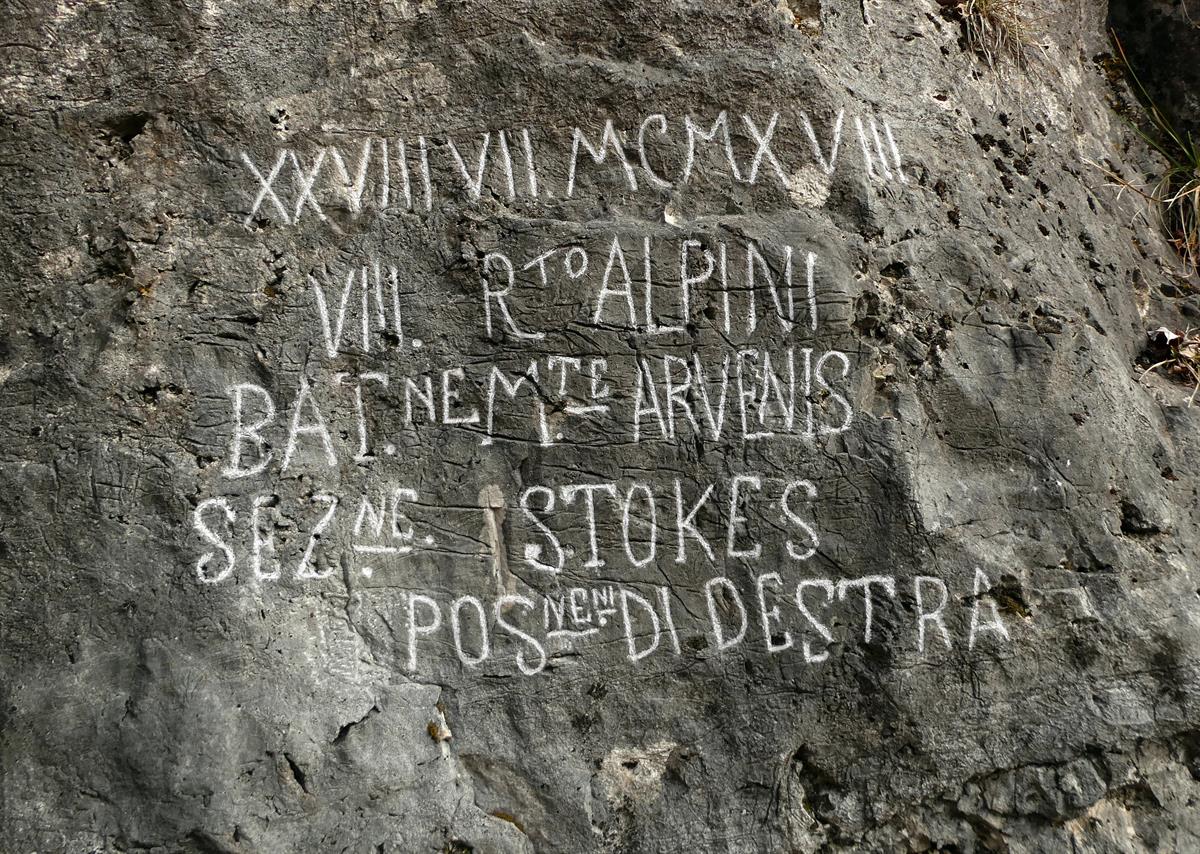 XXVIII VII. MCMXVIII
VIII. RTO ALPINI
BAT.NE MTE. ARVENIS
SEZNE. STOKES
POSNENI DI DESTRA